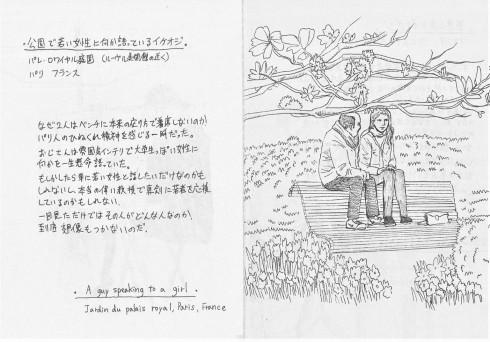 ・公園で若い女性に何か語っているイケオジ。
パレ・ロワイヤル庭園 (ルーヴル美術館の近く)
パリ フランス
なぜ2人はベンチに本来の座り方で着席しないのか!
パリ人のひねくれ精神を感じる一瞬だった。
おじさんは雰囲気インテリで大学生っぽい女性に
何かを一生懸命語っていた。
もしかしたら単に若い女性と話したいだけなのかも
しれないし本当の偉い教授で真剣に若者を応援
しているのかもしれない。
一目見ただけではその人がどんな人なのか、
到底想像もつかないのだ。
・A guy speaking to a girl・
Jardin du palais royal, Paris, France